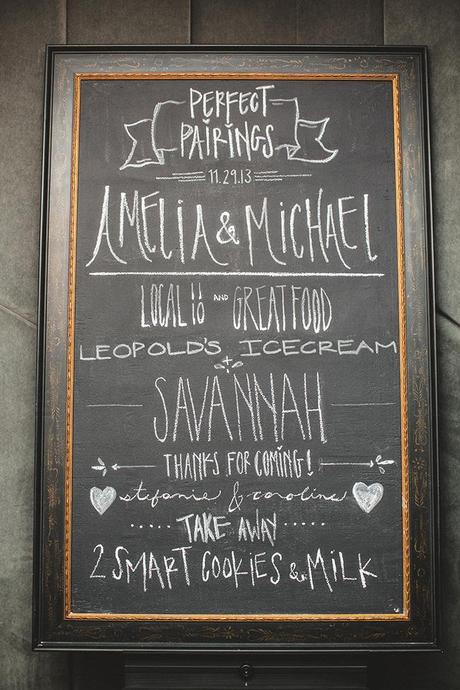 PERFECT
PAIRINGS
11.29.13
AMELIA & MICHAEL
LOCAL 10 AND GREAT FOOD
LEOPOLD'S ICECREAM
+
SAVANNAH
THANKS FOR COMING!
stefanie & caroline
TAKE AWAY
2 SMART COOKIES & MILK